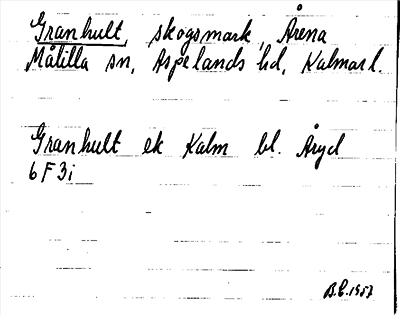 Granhult, skogsmark, Årena
Målilla sn, Aspelands hd, Kalmar l.
Granhult ek Kalm bl. Åryd
6 F 3i
B.E. 1957